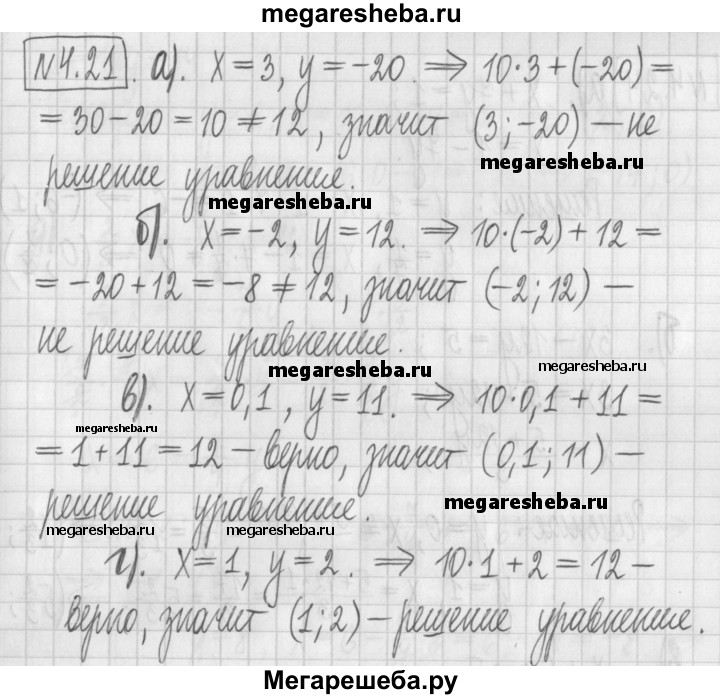 megaresheba.ru
№4.21. а). x=3, y=-20. ⇒ 10·3+(-20)=
=30-20=10≠12, значит (3;-20)—не
megaresheba.ru
решение уравнение.
megaresheba.ru
б). x=-2, y=12. ⇒ 10·(-2)+12=
=-20+12=-8≠12, значит (-2;12)—
не решение уравнение.
megaresheba.ru
megaresheba.ru
в). x=0,1, y=11. ⇒ 10·0,1+11=
megaresheba.ru
=1+11=12-верно, значит (0,1;11)—
решение уравнение.
megaresheba.ru
megaresheba.ru
megaresheba.ru
г). x=1, y=2. ⇒ 10·1+2=12-
верно, значит (1;2)-решение уравнение.
Мегарешеба.ру